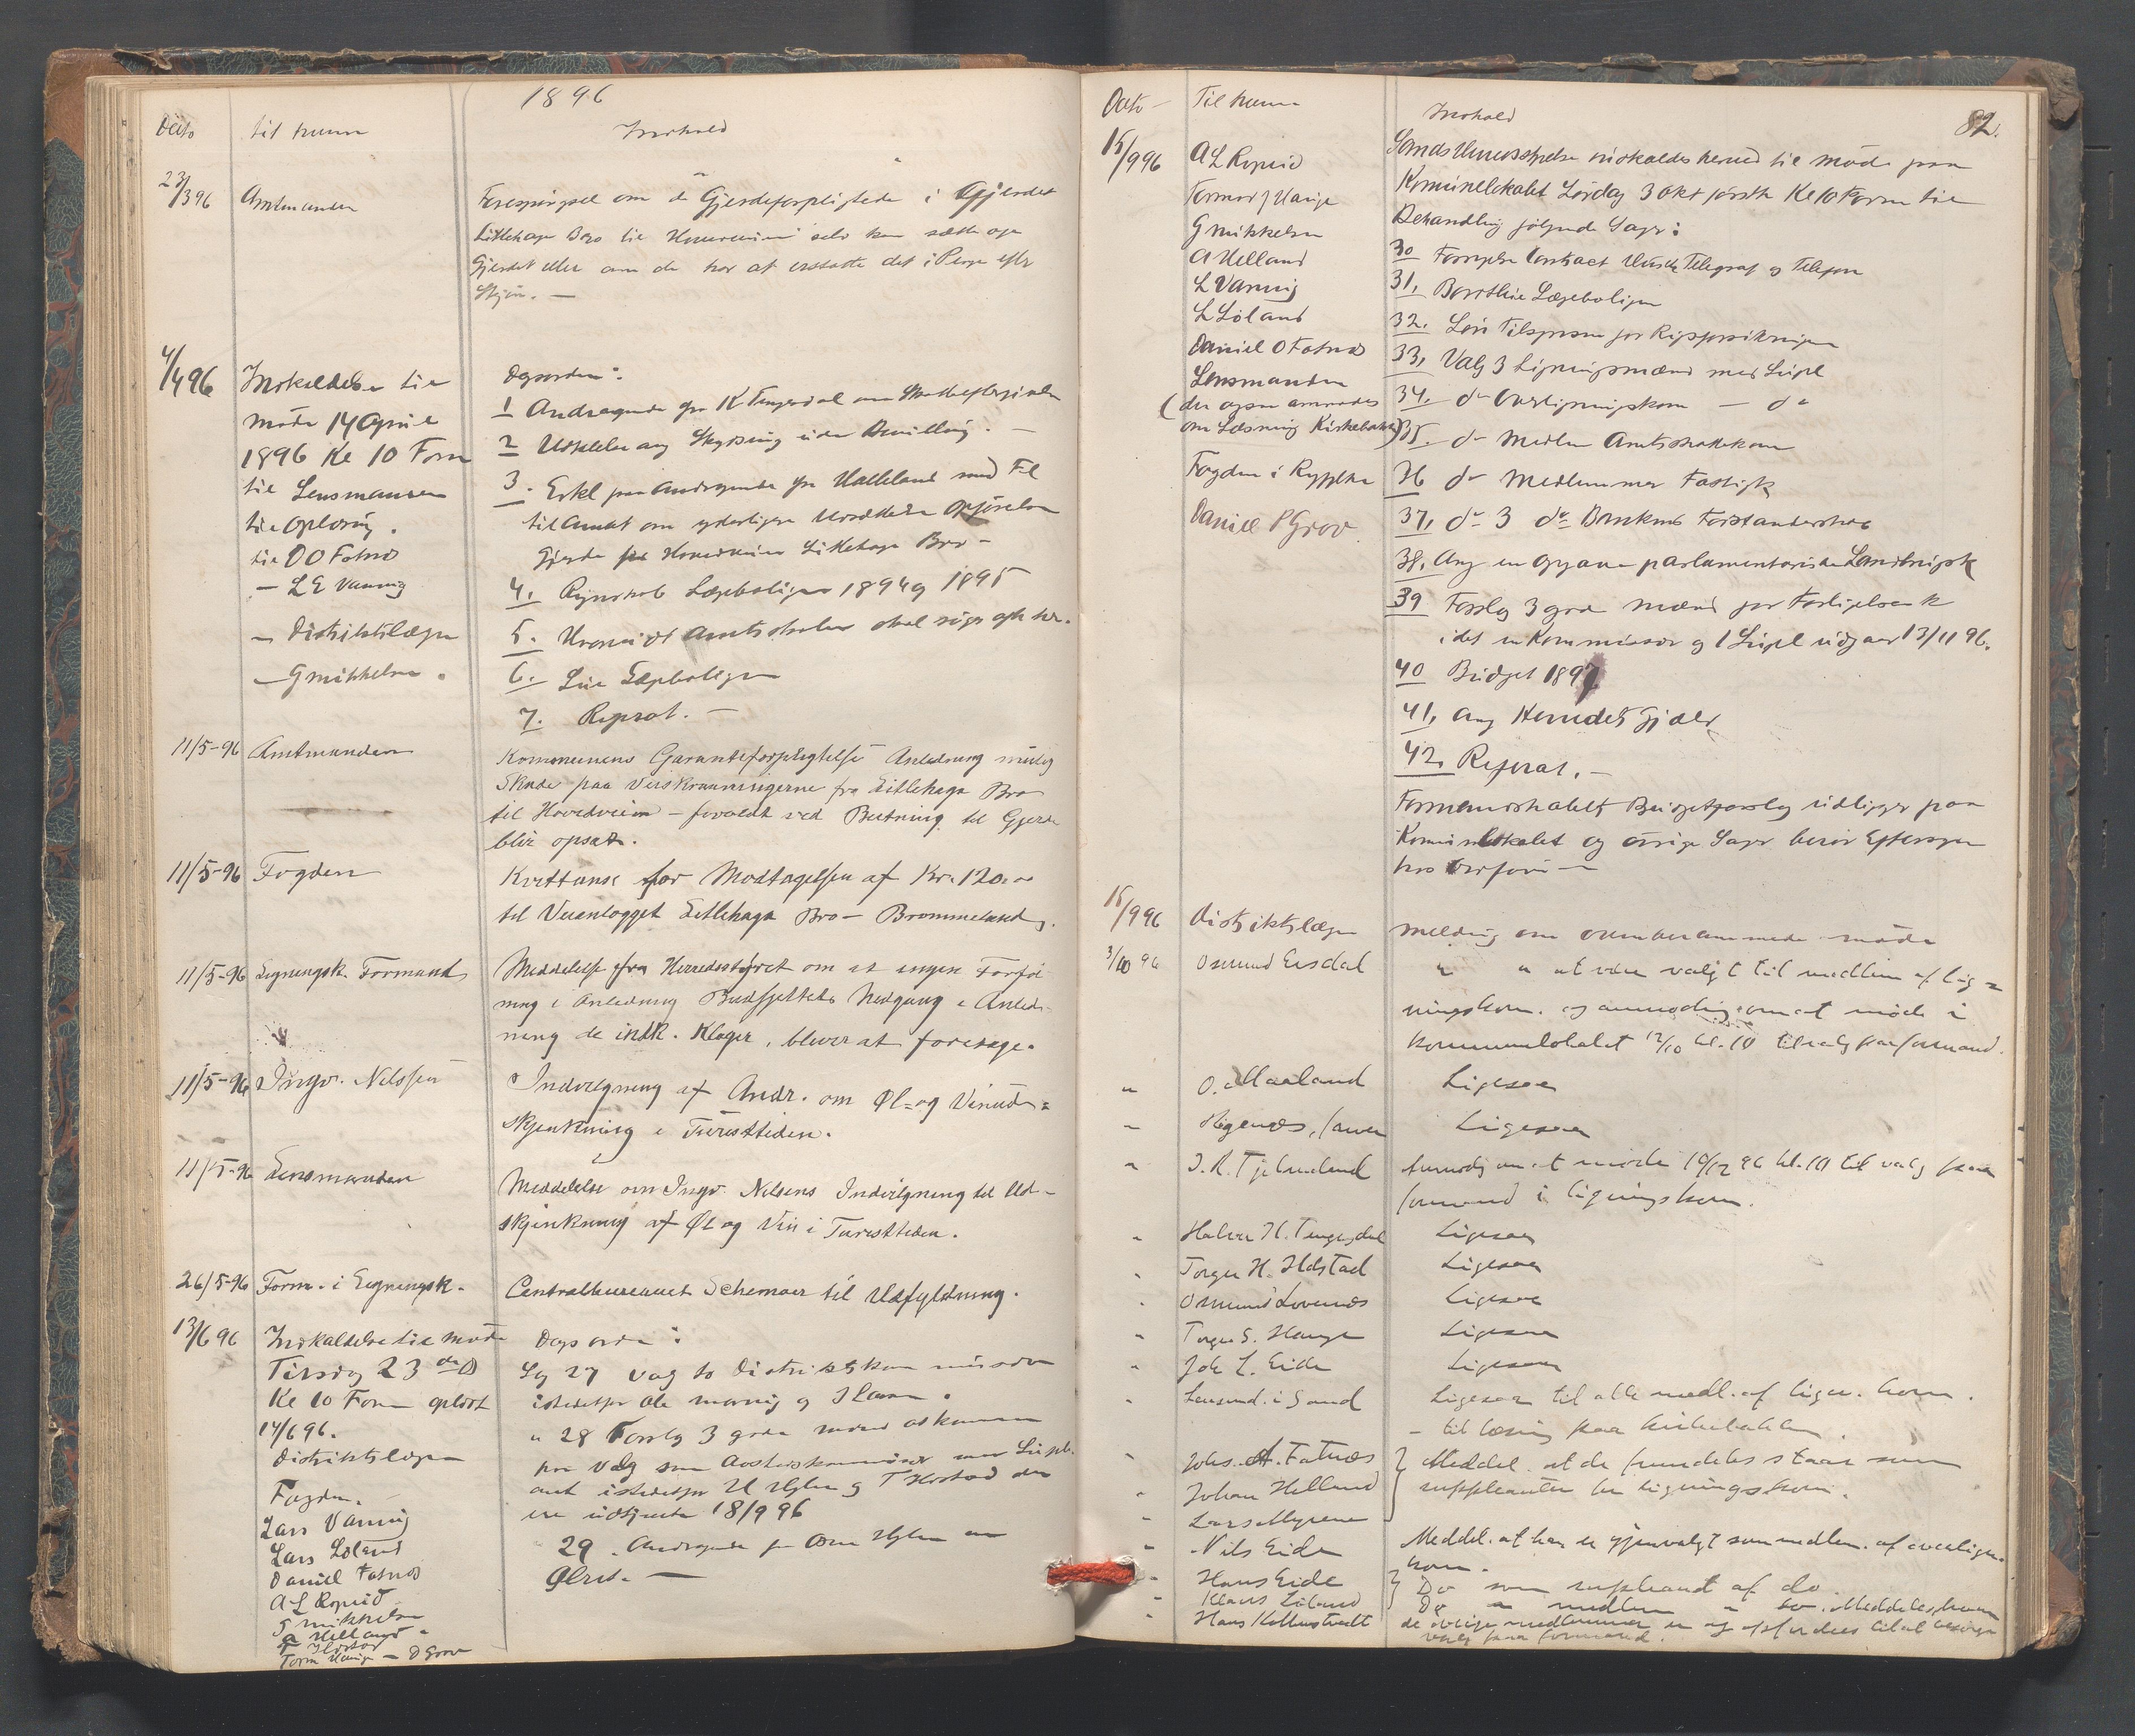 1896
Dato
til hvem
Indhold
23/3 96
Amtmanden
Forespørgsel om de Gjerdeforpligtede i Gjerdet
Littlehaga Bro til Hovedveien selv kan sætte op
Gjerdet eller om de har at erstatte det i Penge efter
Skjøn. —
4/4 96
Indkaldelse til
Møde 14 April
1896 Kl 10 Form
til Lensmanden
til Oplæsning.
til D O Fatnes
— L E Vanvig
— Distriktslægen
— G Mikkelsen.
Dagsorden:
1 Andragende fra K Tengesdal om Skatteeftergivelse
2 Udtalelse ang Skydsning uden Bevilling. —
3. Erkl paa Andragende fra Helleland med Fl
til Amtet om yderligere Udsættelse Opførelse
Gjerde fra Hovedveien Littlehaga Bro —
4. Regnskab Lægeboligen 1894 og 1895
5. Hvorvidt Amtsskolen skal søges her.
6. Leie Lægeboligen
7. Referat. —
11/5-96
Amtmanden
Kommunens Garantiforpligtelse Anledning mulig
Skade paa Veiskraaningerne fra Littlehaga Bro
til Hovedveien — forvoldt ved Beitning til Gjerde
blir opsat.
11/5-96
Fogden
Kvittanse for Modtagelsen af Kr. 120.00
til Veianlægget Littlehaga Bro — Brommeland.
11/5-96
Ligningsk. Formand
Meddelelse fra Herredsstyret om at ingen Forføi
ning i Anledning Budsjettets Nedgang i Anled-
ning de indk. Klager, bliver at foretage.
11/5-96
Ingv. Nilssen
Indvilgning af Andr. om Øl- og Vinud-
skjænkning i Turisttiden.
11/5-96
Lensmanden
Meddelelse om Ingv. Nilsens Indvilgning til Ud-
skjænkning af Øl og Vin i Turisttiden.
26/5-96
Form. i Ligningsk.
Centralbureauet Schemaer til Udfyldning.
13/6 96
Indkaldelse til Møde
Tirsdag 23de ds
Kl 10 Form oplæst
14/6 96.
Distriktslægen
Fogden.
Lars Vanvig
Lars Løland
Daniel Fatnes
A L Ropeid
G Mikkelsen
A Helland
T Herstad
Torm Hauge — D Grov
Dagsorden:
Sag 27 Valg to Distriktskommissær
istedetfor Ole
" 28 Forslag 3 gode Mænd
for Valg som
istedetfor H Hylen og T Herstad der
ere udtjente 18/9 96
29. Andragende fra Hylen om
Ølret. —
82.
Dato —
Til hvem
Indhold
15/9 96
A L Ropeid
Tormod J Hauge
G Mikkelsen
A Helland
L Vanvig
L Løland
Daniel O Fatnes
Lensmanden
(der ogsaa anmodes
om Læsning Kirkebakken)
Fogden i Ryfylke
Daniel P Grov.
Sands Herredsstyrelse indkaldes herved til Møde paa
Kommunelokalet Lørdag 3 Okt førstk Kl 10 Form til
Behandling følgende Sager:
30 Fornyelse Contract Telegraf og Telefon
31. Bortleie Lægeboligen
32. Løn Tilsynsm for
33. Valg 3 Ligningsmænd med Supl
34. do Overligningskom — do
35. do Medlem Amtsskattekom
36 do Medlemmer Fattigk
37. do 3 do Bankens Forstanderskab
38. Ang en Opgave parlamentariske Landbrugsk
39 Forslag 3 gode Mænd for
idet en Kommissær og 1 Supl udgaar 13/11 96.
40 Budget 1897
41. Ang Herredets Gjæld
42. Referat. —
Formandskabets Budgetforslag udligger paa
Kommunelokalet og øvrige Sager beror Eftersyn
hos Ordfører —
15/9 96
Distriktslægen
Melding om ovenberammede Møde
3/10 96
Osmund Eisdal
" " at være valgt til medlem af lig=
ningskom. og anmodning om at møde i
Kommunelokalet 12/10 kl. 10 til valg paa formand.
"
O. Maaland
Ligesaa
"
Ligesaa
"
J. R. Tjelmeland
Anmodn om at møde 10/12 96 kl. 10 til valg paa
formand i ligningskom.
"
Halvor H. Tengesdal
Ligesaa
"
Torger H. Hølstad
Ligesaa
"
Osmund Lovenæs
Ligesaa
"
Torger S. Hauge
Ligesaa
"
Joh L. Eide
Ligesaa
"
Lensmd. i Sand
Ligesaa til alle medl. af lign. kom.
— til læsning paa kirkebakken.
"
Johs. A. Fatnæs
Meddel. at de fremdeles staar som
"
Johan Helland
suppleanter for ligningskom.
"
Lars Myrene
"
Nils Eide
Meddel. at han er gjenvalgt som medlem. af overlign.-
kom.
"
Hans Eide
Do som supleant af do
"
Klaus Løland
Do " medlem " do. Meddeles, hvem
"
Hans Kollbustvedt
de øvrige medlemmer er og opfordres til at besørge
valg paa formand.